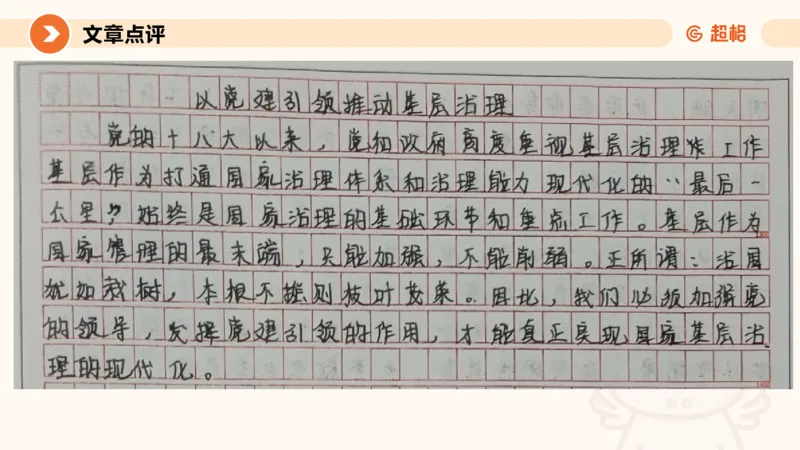 文章点评
超格
以党建引领推动基层治理
党的十八大以来，党和政府高度重视基层治理工作
基层作为打通国家治理体系和治理能力现代化的“最后一
公里”始终是国家治理的基础环节和重点工作。基层作为
国家管理的最末端，只能加强，不能削弱。正所谓：治国
犹如栽树，本根不摇则枝叶茂荣。因此，我们必须加强党
的领导，发挥党建引领的作用，才能真正实现国家基层治
理的现代化。